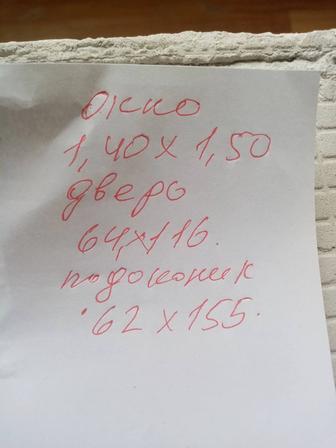 окно
1,40 х 1,50
дверь
64,х116.
подоконик
62 х 155.